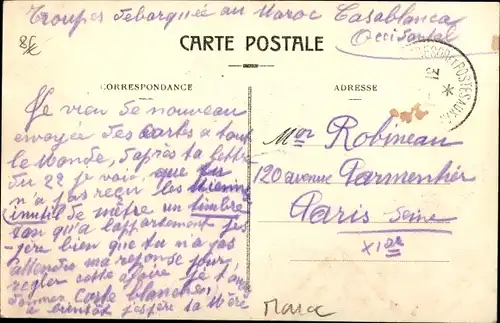 Troupes debarquée au Maroc Casablanca
Occidental
CARTE POSTALE
TRESOR ET POSTES AUX
CORRESPONDANCE
ADRESSE
Je vien de nouveau
envoyée des cartes a tout
le Monde, d'après ta lettre
du 22 je voi, que tu
n'a pas reçu les tienne
inutil de mêtre un timbre
tan qu'a l'appartement j'es
père bien que tu n'a pas
attendu ma reponse pour
regler cette affaire je t'
donnes Carte blanche,
a bientôt j'espère ta Mère
Mor Robineau
120 avenue Parmentier
Paris Seine
XI
Maroc